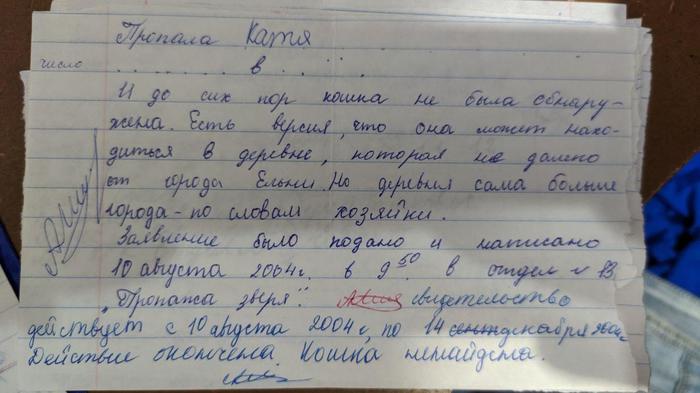 Пропала Катя
число ......... в ... ...
И до сих пор кошка не была обнару-
жена. Есть версия, что она может нахо-
диться в деревне, которая не далеко
от города Ельни. Но деревня сама больше
города - по словам хозяйки.
Заявление было подано и написано
10 августа 2004г. в 9 50 в отдел
"Пропажа зверя". свидетельство
действует с 10 августа 2004 г. по 14 декабря 2004г.
Действие окончена. Кошка ненайдена.